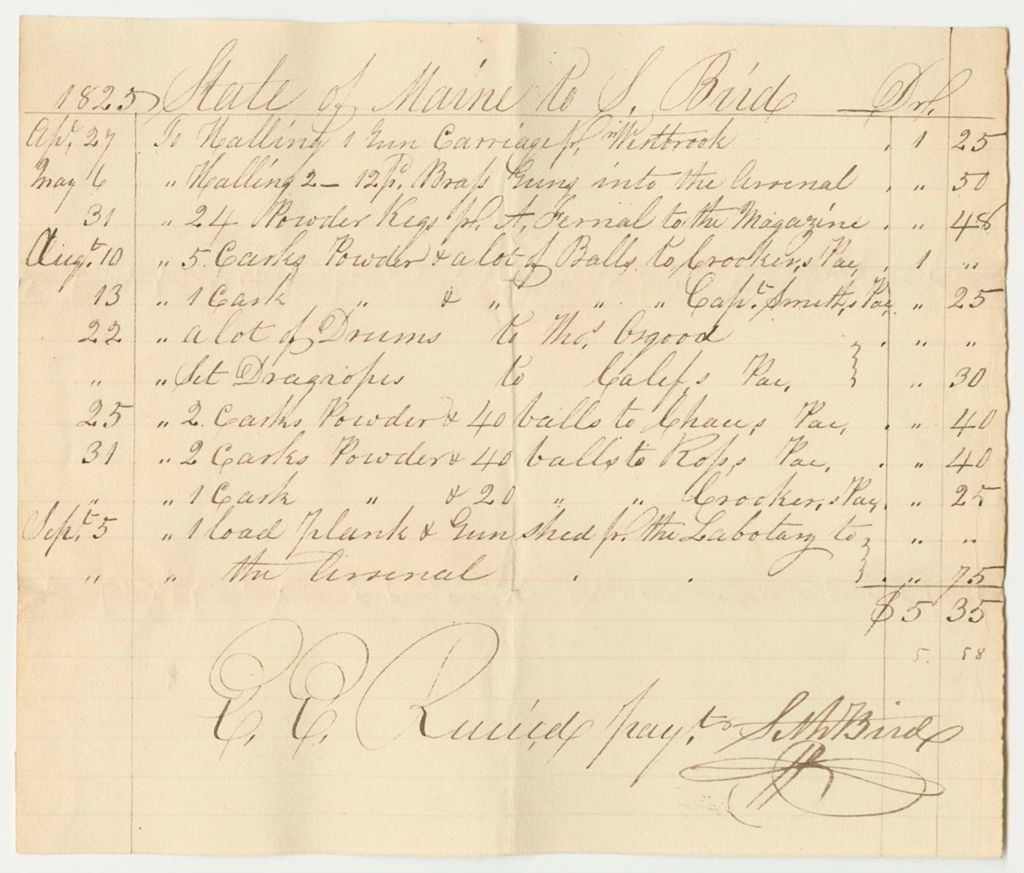 1825 State of Maine to S. Bird Dr.
Apr. 27 To Halling 1 Gun Carriage fr. Westbrook . 1 25
May 6 " Halling 2 - 12 pd. Brass Guns into the Arsenal . " 50
31 " 24 Powder Kegs fr. A, Fernal to the Magazine . " 48
Augt. 10 " 5 Casks Powder & a lot of Balls to Crooker,s Pac, . 1 "
13 " 1 Cask " & " " " Capt. Smith,s Pac, . " 25
22 " a lot of Drums to Thos. Osgood . " "
" " Set Dragropes to Calef,s Pac, " 30
25 " 2 Casks Powder & 40 balls to Chau,s Pac, . " 40
31 " 2 Casks Powder & 40 balls to Ross,s Pac, . " 40
" " 1 Cask " & 20 " " Crooker,s Pac, . " 25
Sept. 5 " 1 load plank & Gun shed fr. the Labotary to " "
" " the Arsenal . . . " 75
$ 5 35
5. 58
E. E. Receiv,d payt. Seth Bird